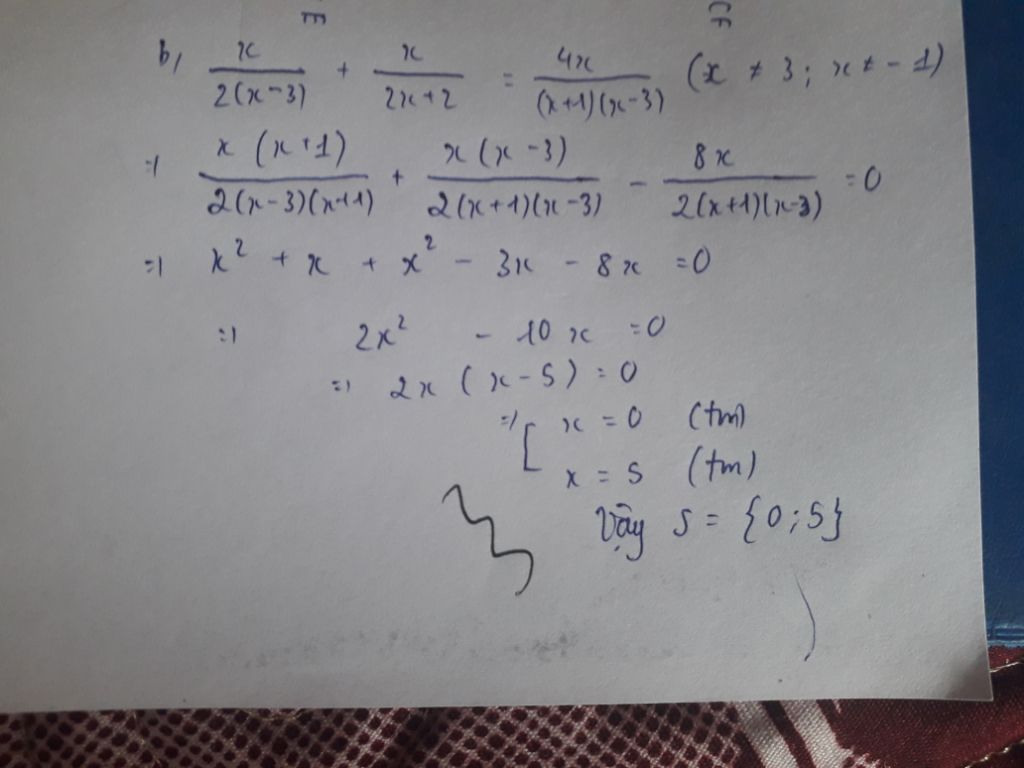 E CF
b, x/2(x-3) + x/2x+2 = 4x/(x+1)(x-3) (x ≠ 3; x ≠ -1)
=) x(x+1)/2(x-3)(x+1) + x(x-3)/2(x+1)(x-3) - 8x/2(x+1)(x-3) = 0
=) x² + x + x² - 3x - 8x = 0
=) 2x² - 10x = 0
=) 2x(x-5) = 0
=) [ x = 0 (tm)
x = 5 (tm)
Vậy S = {0; 5}